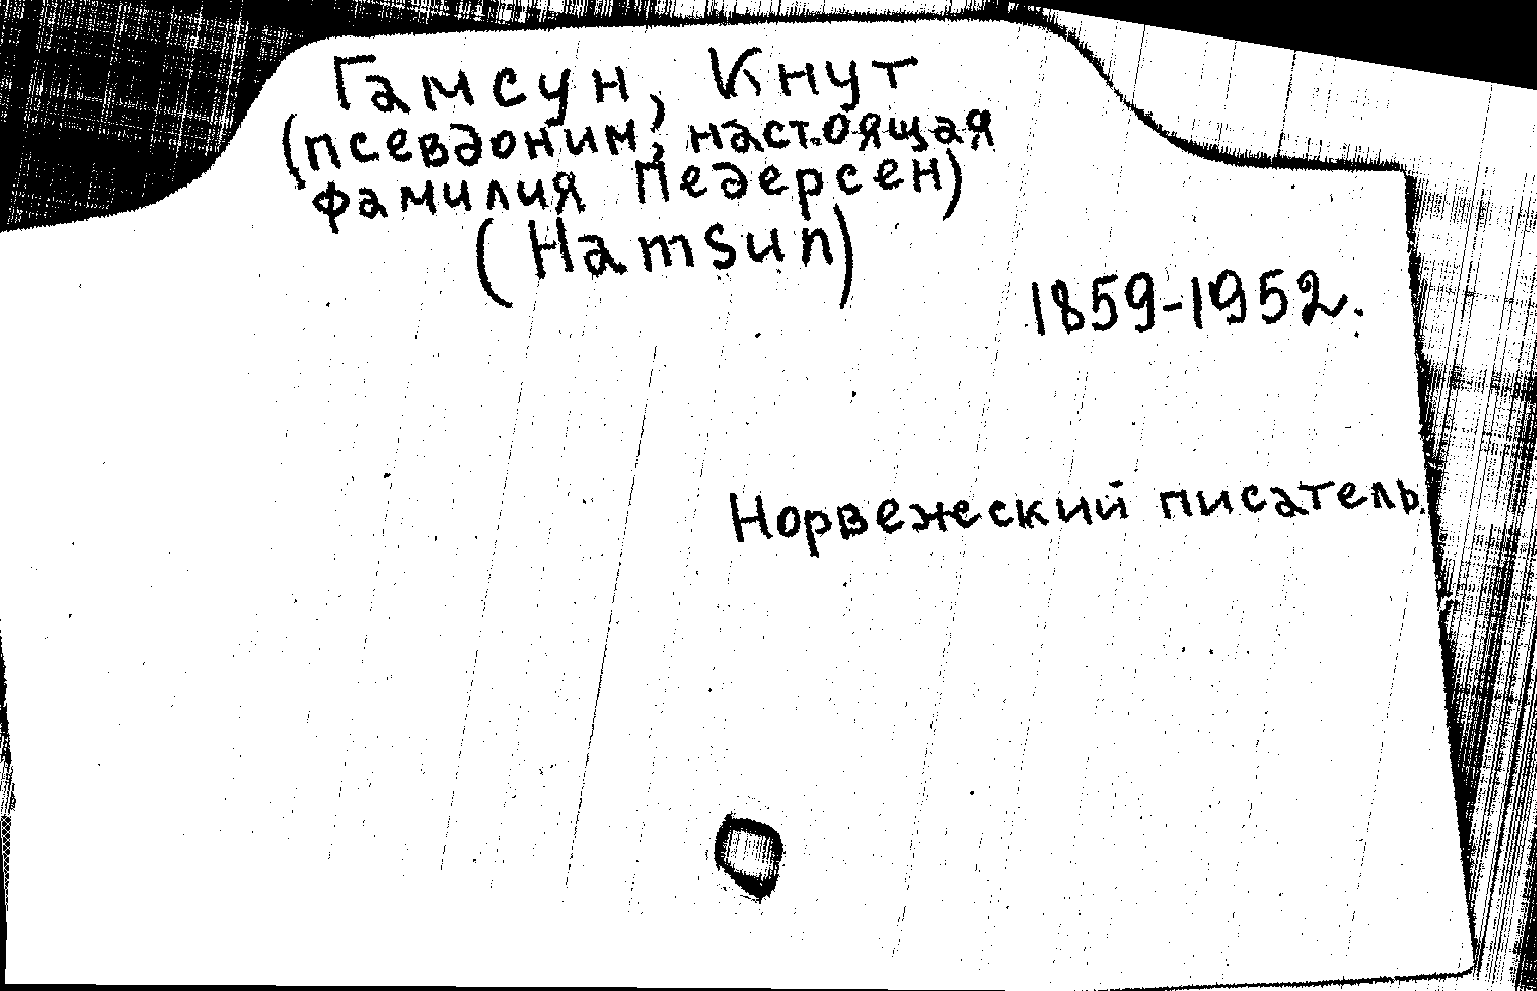 Гамсун, Кнут
(псевдоним, настоящая
фамилия Педерсен)
(Hamsun)
1859-1952.
Норвежский писатель.